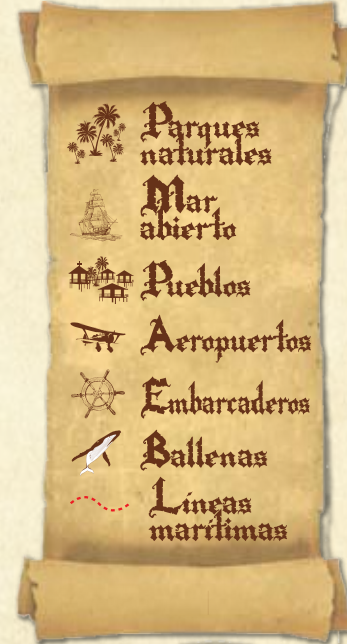 Parques
naturales
Mar
abierto
Pueblos
Aeropuertos
Embarcaderos
Ballenas
Líneas
marítimas